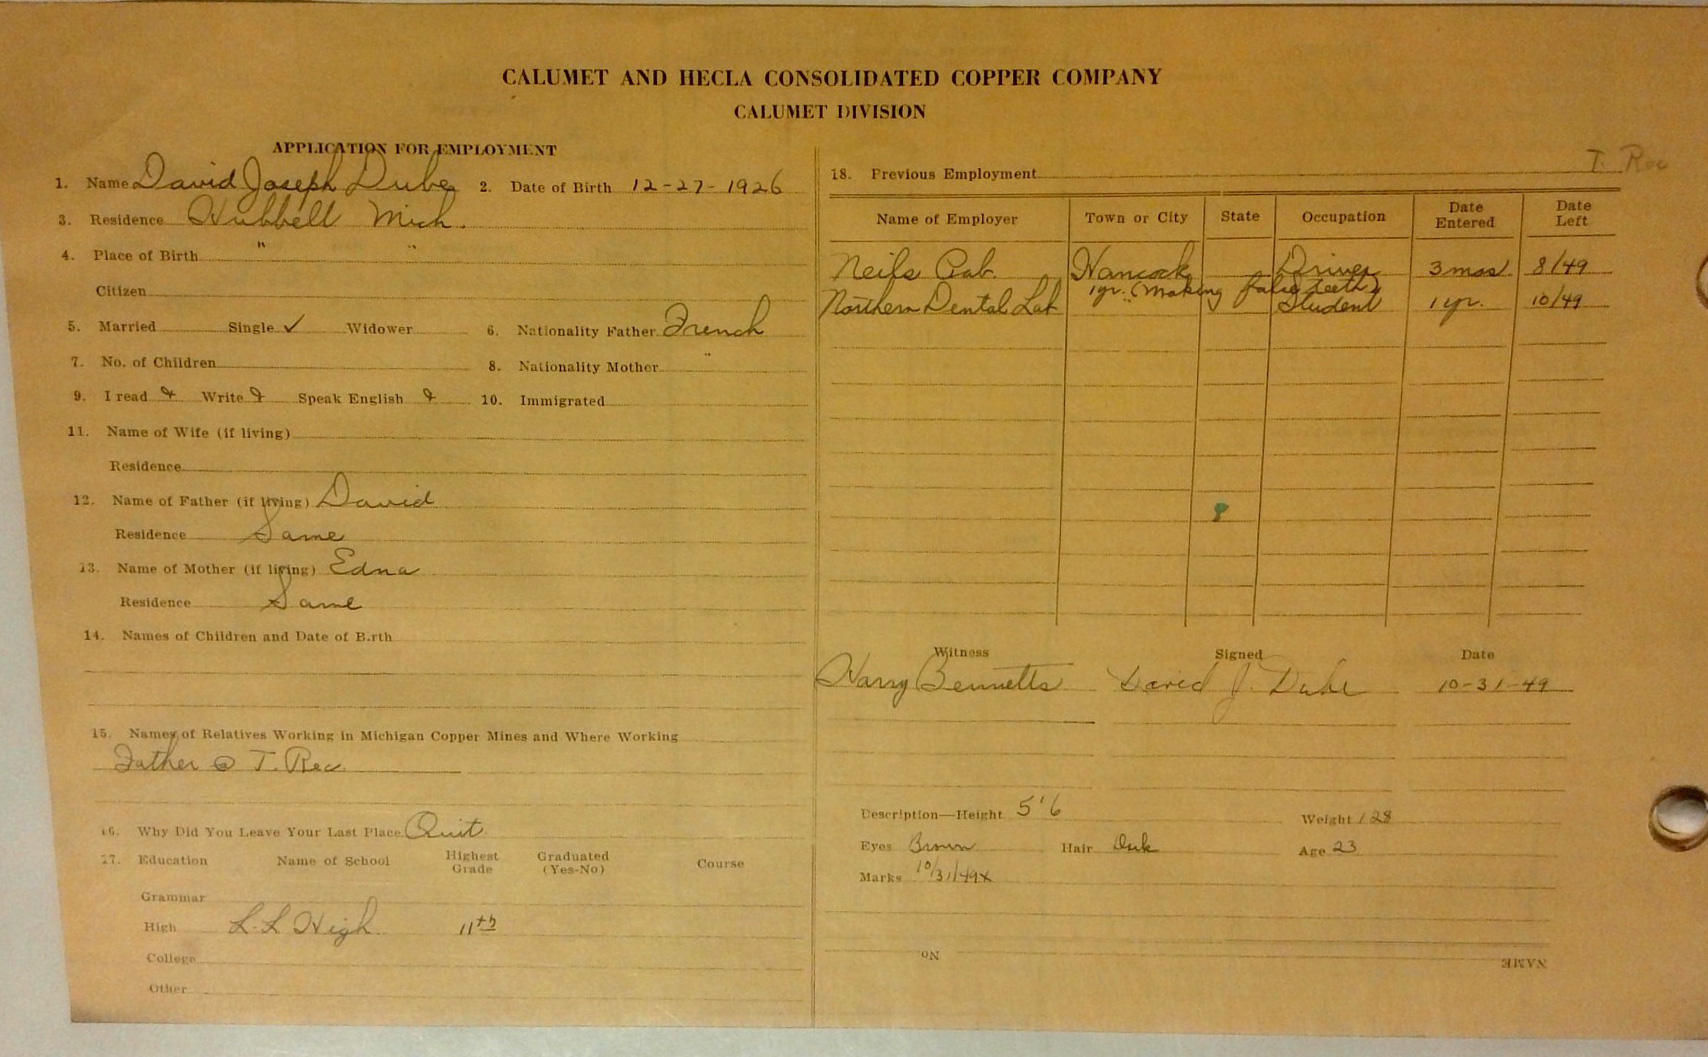 CALUMET AND HECLA CONSOLIDATED COPPER COMPANY
CALUMET DIVISION
APPLICATION FOR EMPLOYMENT
1. Name David Joseph Dube 2. Date of Birth 12-27-1926
3. Residence Hubbell Mich.
4. Place of Birth " "
Citizen
5. Married Single ✓ Widower 6. Nationality Father French
7. No. of Children 8. Nationality Mother "
9. I read Write Speak English 10. Immigrated
11. Name of Wife (if living)
Residence
12. Name of Father (if living) David
Residence Same
13. Name of Mother (if living) Edna
Residence Same
14. Names of Children and Date of B.rth
15. Names of Relatives Working in Michigan Copper Mines and Where Working
Father @ T. Rec.
16. Why Did You Leave Your Last Place Quit
17. Education Name of School Highest Grade Graduated (Yes-No) Course
Grammar
High L. L High 11th
College
Other
T. Rec
18. Previous Employment
Name of Employer Town or City State Occupation Date Entered Date Left
Neils Cab. Hancock Driver 3 mos 8/49
1 yr. (Making false teeth)
Northern Dental Lab " Student 1 yr. 10/49
Witness Signed Date
Harry Bennetts David J. Dube 10-31-49
Description—Height 5'6 Weight 128
Eyes Brown Hair Drk Age 23
Marks 10/31/49x
No. NAME